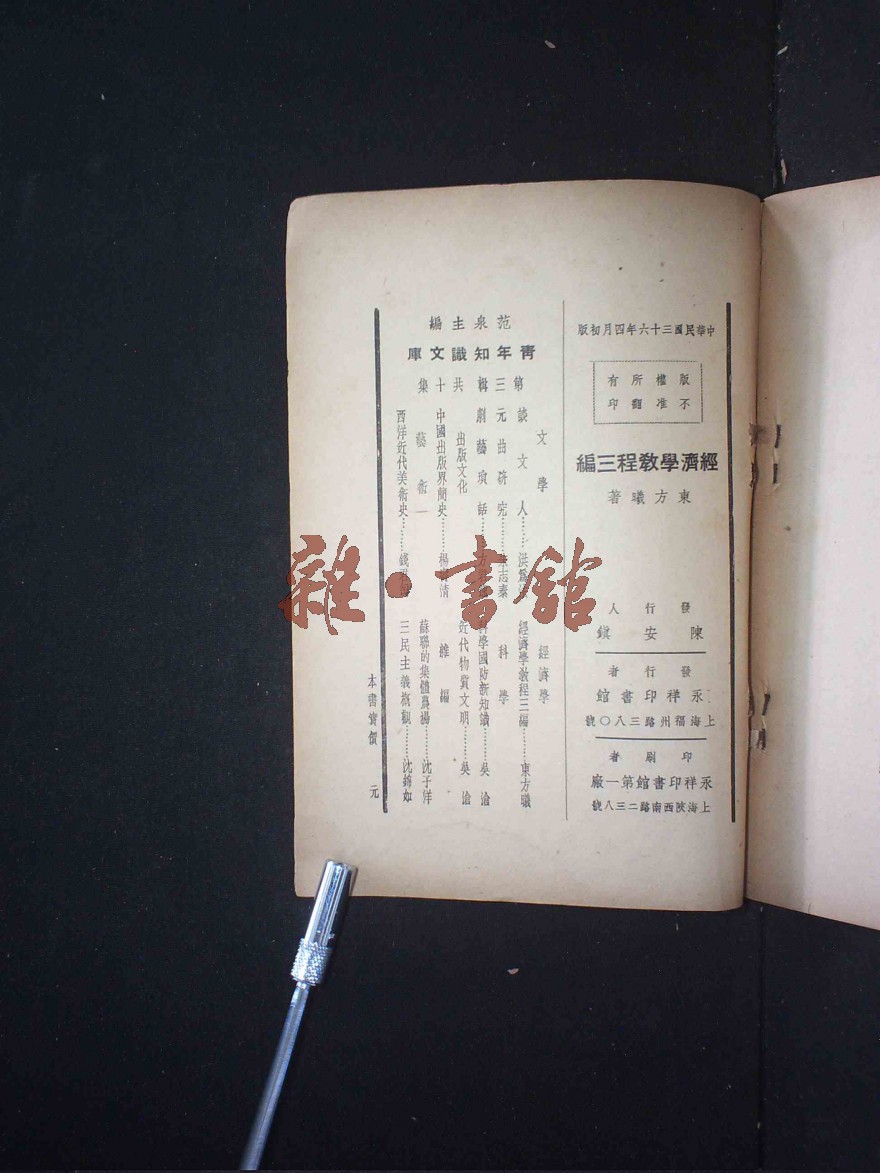 中華民國三十六年四月初版
版權所有
不准翻印
經濟學教程三編
東方曦著
發行人
陳安鎮
發行者
永祥印書館
上海福州路三八〇號
印刷者
永祥印書館第一廠
上海陝西南路二三八號
范泉主編
青年知識文庫
第三輯共十集
文學
談文人………洪
元曲研究………志素
劇藝瑣話
出版文化
中國出版界簡史………楊 清
藝術
西洋近代美術史………錢
經濟學
經濟學教程三編………東方曦
科學
科學國防新知識………吳滄
近代物質文明………吳滄
雜編
蘇聯的集體農場………沈子洋
三民主義概觀………沈錦如
本書實價 元
雜·書館